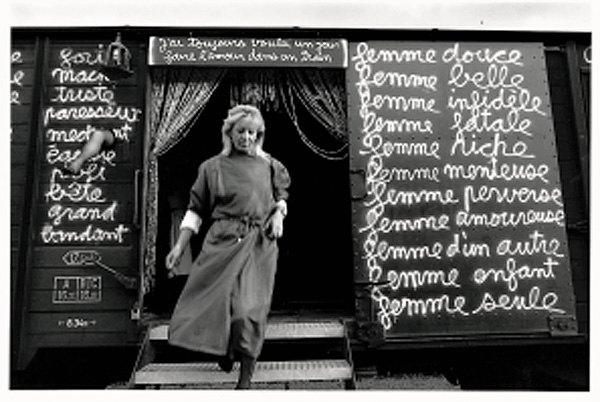 J'ai toujours voulu un jour
faire l'amour dans un train
joli
macho
triste
paresseux
mechant
poli
bête
grand
bandant
femme douce
femme belle
femme infidèle
femme fatale
femme riche
femme menteuse
femme perverse
femme amoureuse
femme d'un autre
femme enfant
femme seule